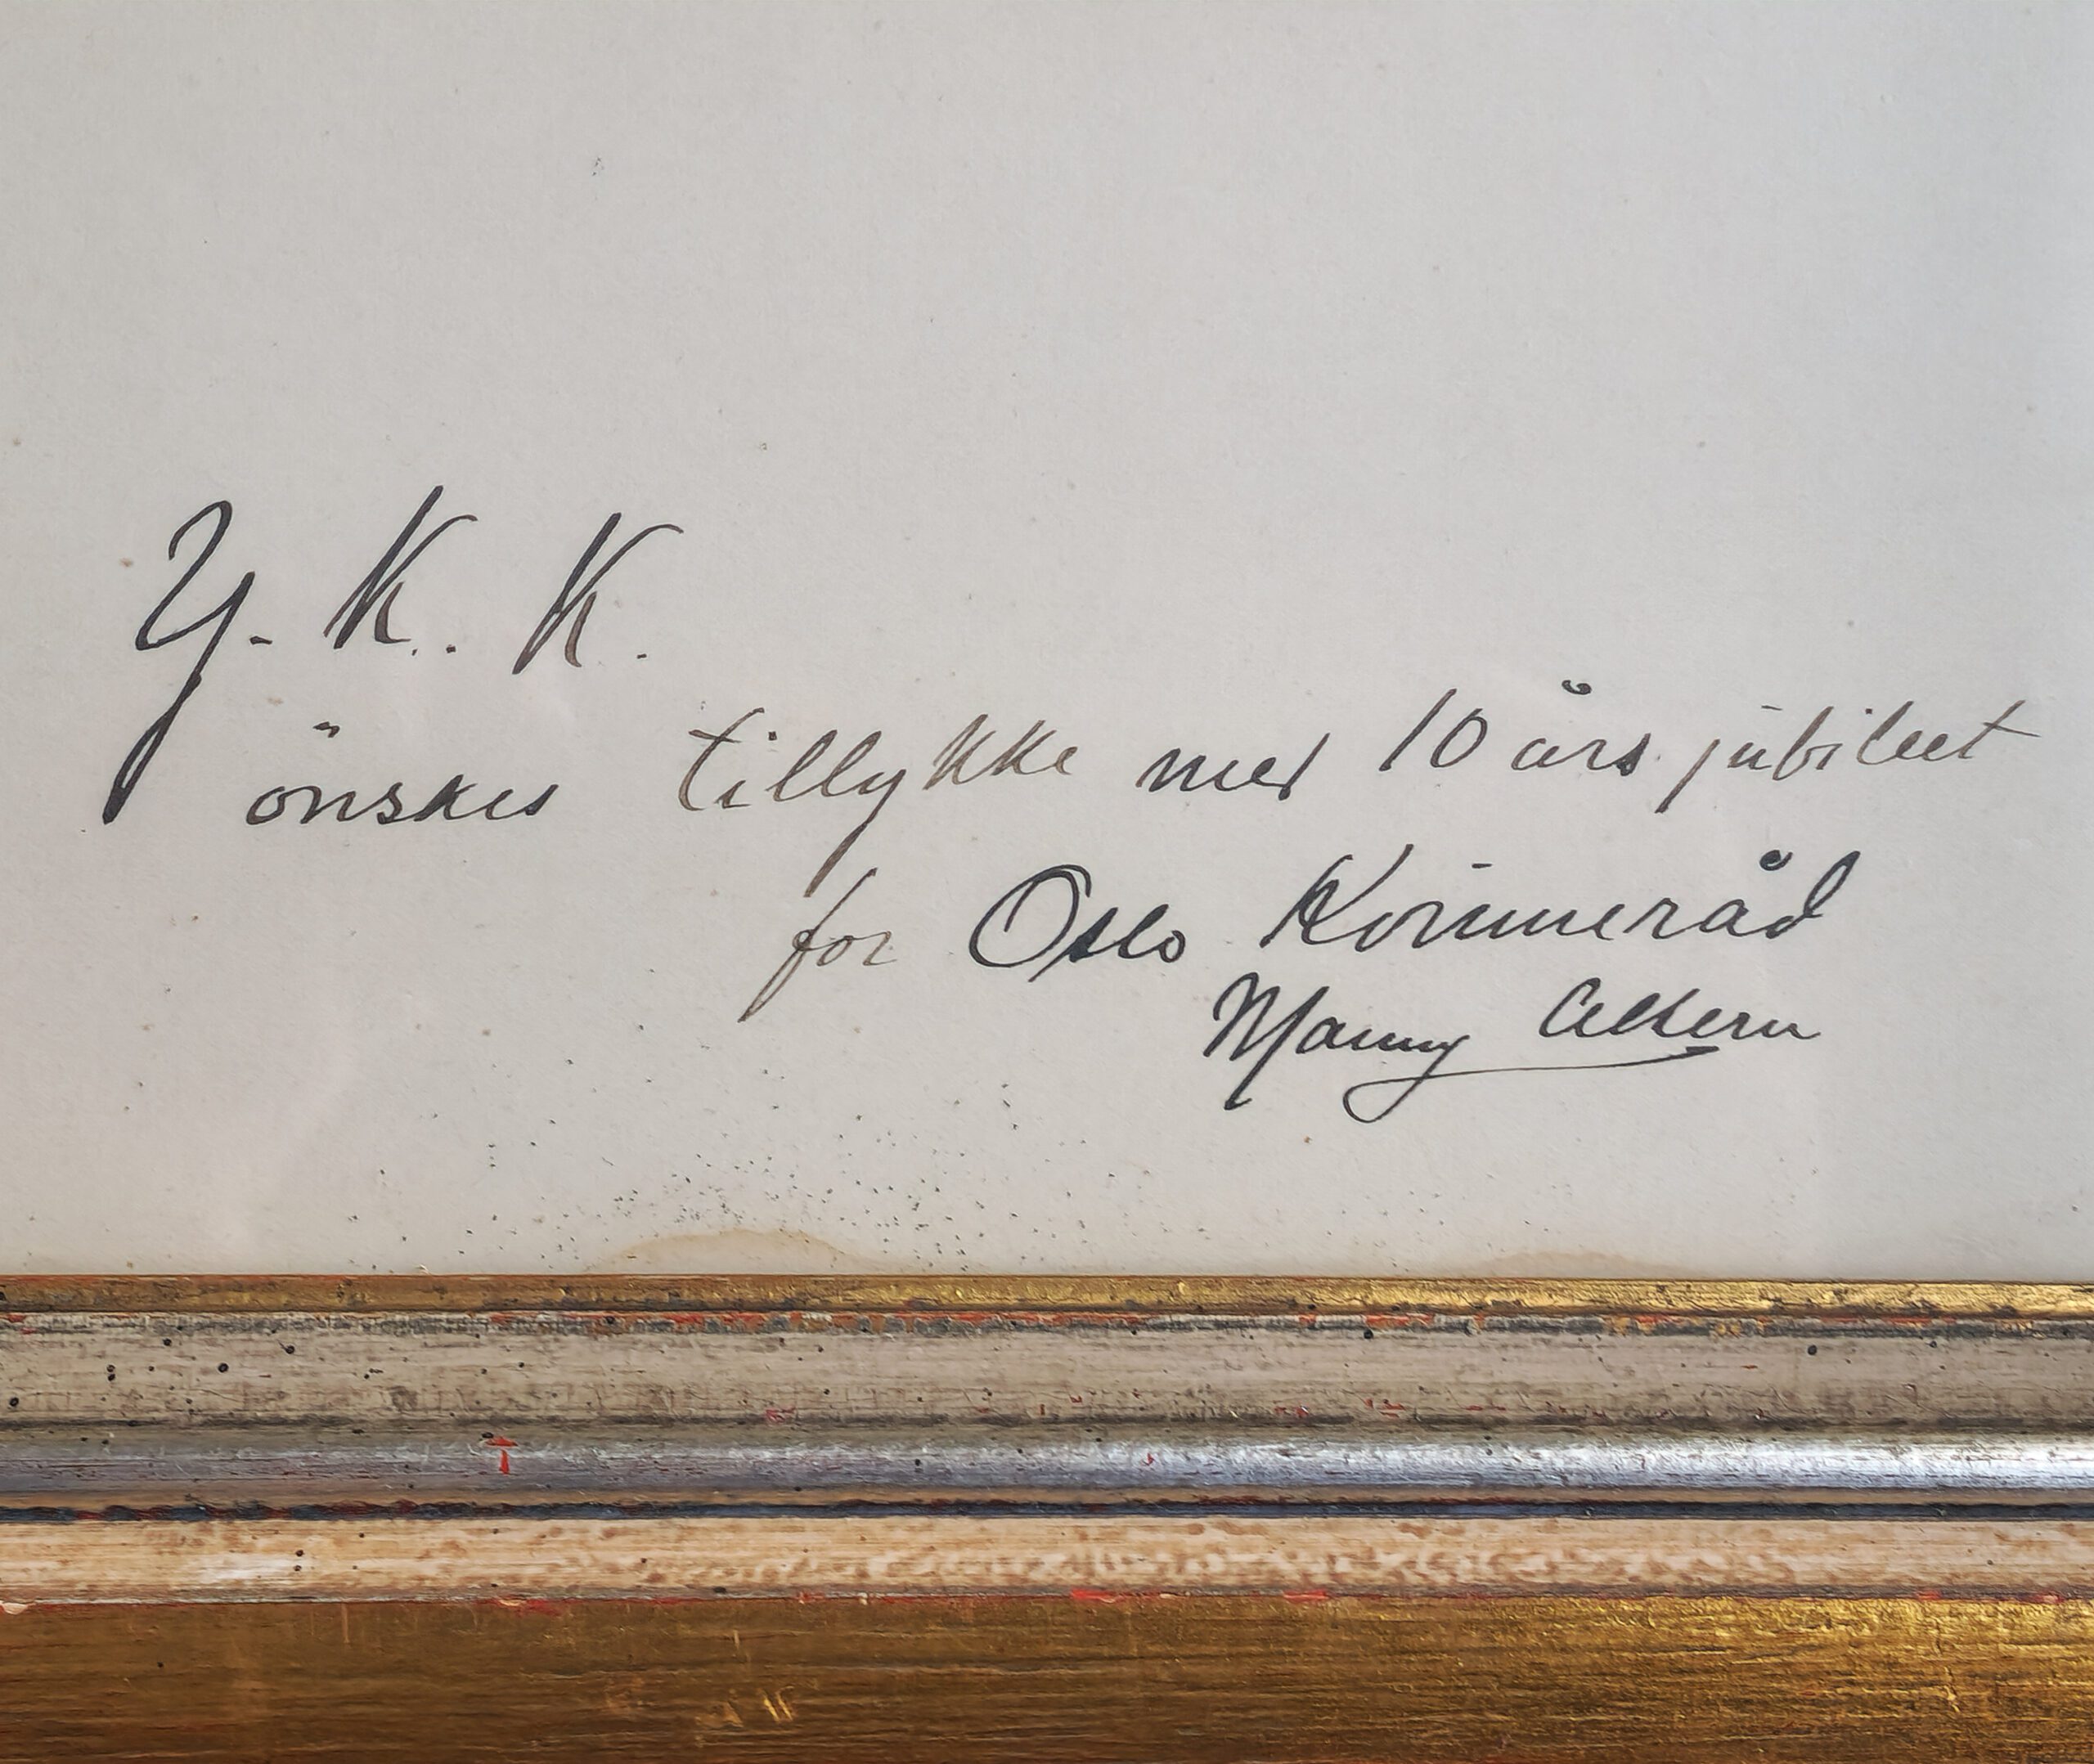 Y. K. K.
önskes tillykke med 10 års jubileet
for Oslo Kvinneråd
Manny